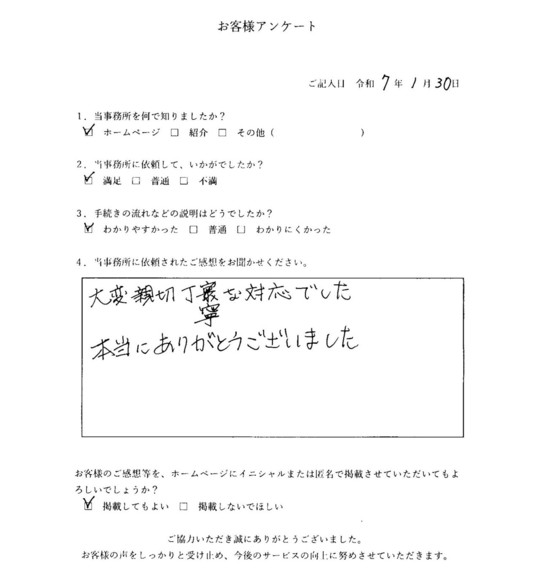 お客様アンケート
ご記入日 令和 7 年 1 月 30 日
1．当事務所を何で知りましたか？
☑ ホームページ □ 紹介 □ その他（ ）
2．当事務所に依頼して、いかがでしたか？
☑ 満足 □ 普通 □ 不満
3．手続きの流れなどの説明はどうでしたか？
☑ わかりやすかった □ 普通 □ わかりにくかった
4．当事務所に依頼されたご感想をお聞かせください。
大変親切丁寧な対応でした
本当にありがとうございました
お客様のご感想等を、ホームページにイニシャルまたは匿名で掲載させていただいてもよ
ろしいでしょうか？
☑ 掲載してもよい □ 掲載しないでほしい
ご協力いただき誠にありがとうございました。
お客様の声をしっかりと受け止め、今後のサービスの向上に努めさせていただきます。